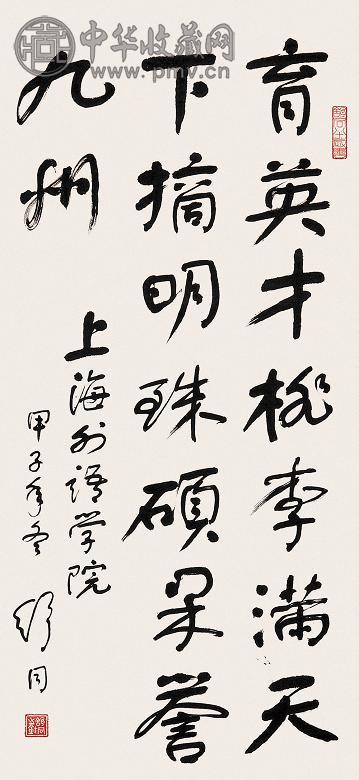 育英才桃李满天
下摘明珠硕果誉
九州
上海外语学院
甲子年冬 舒同
中华收藏网
www.pmcv.cn